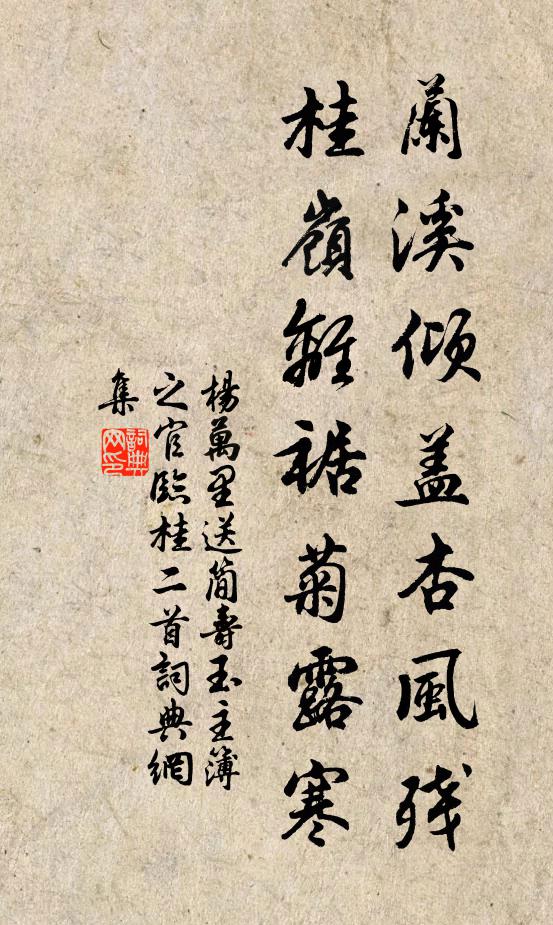 蘭溪傾盖杏風殘
桂嶺離裾菊露寒
楊萬里送簡壽玉主簿
之官臨桂二首詞典網
集
詞典
网印